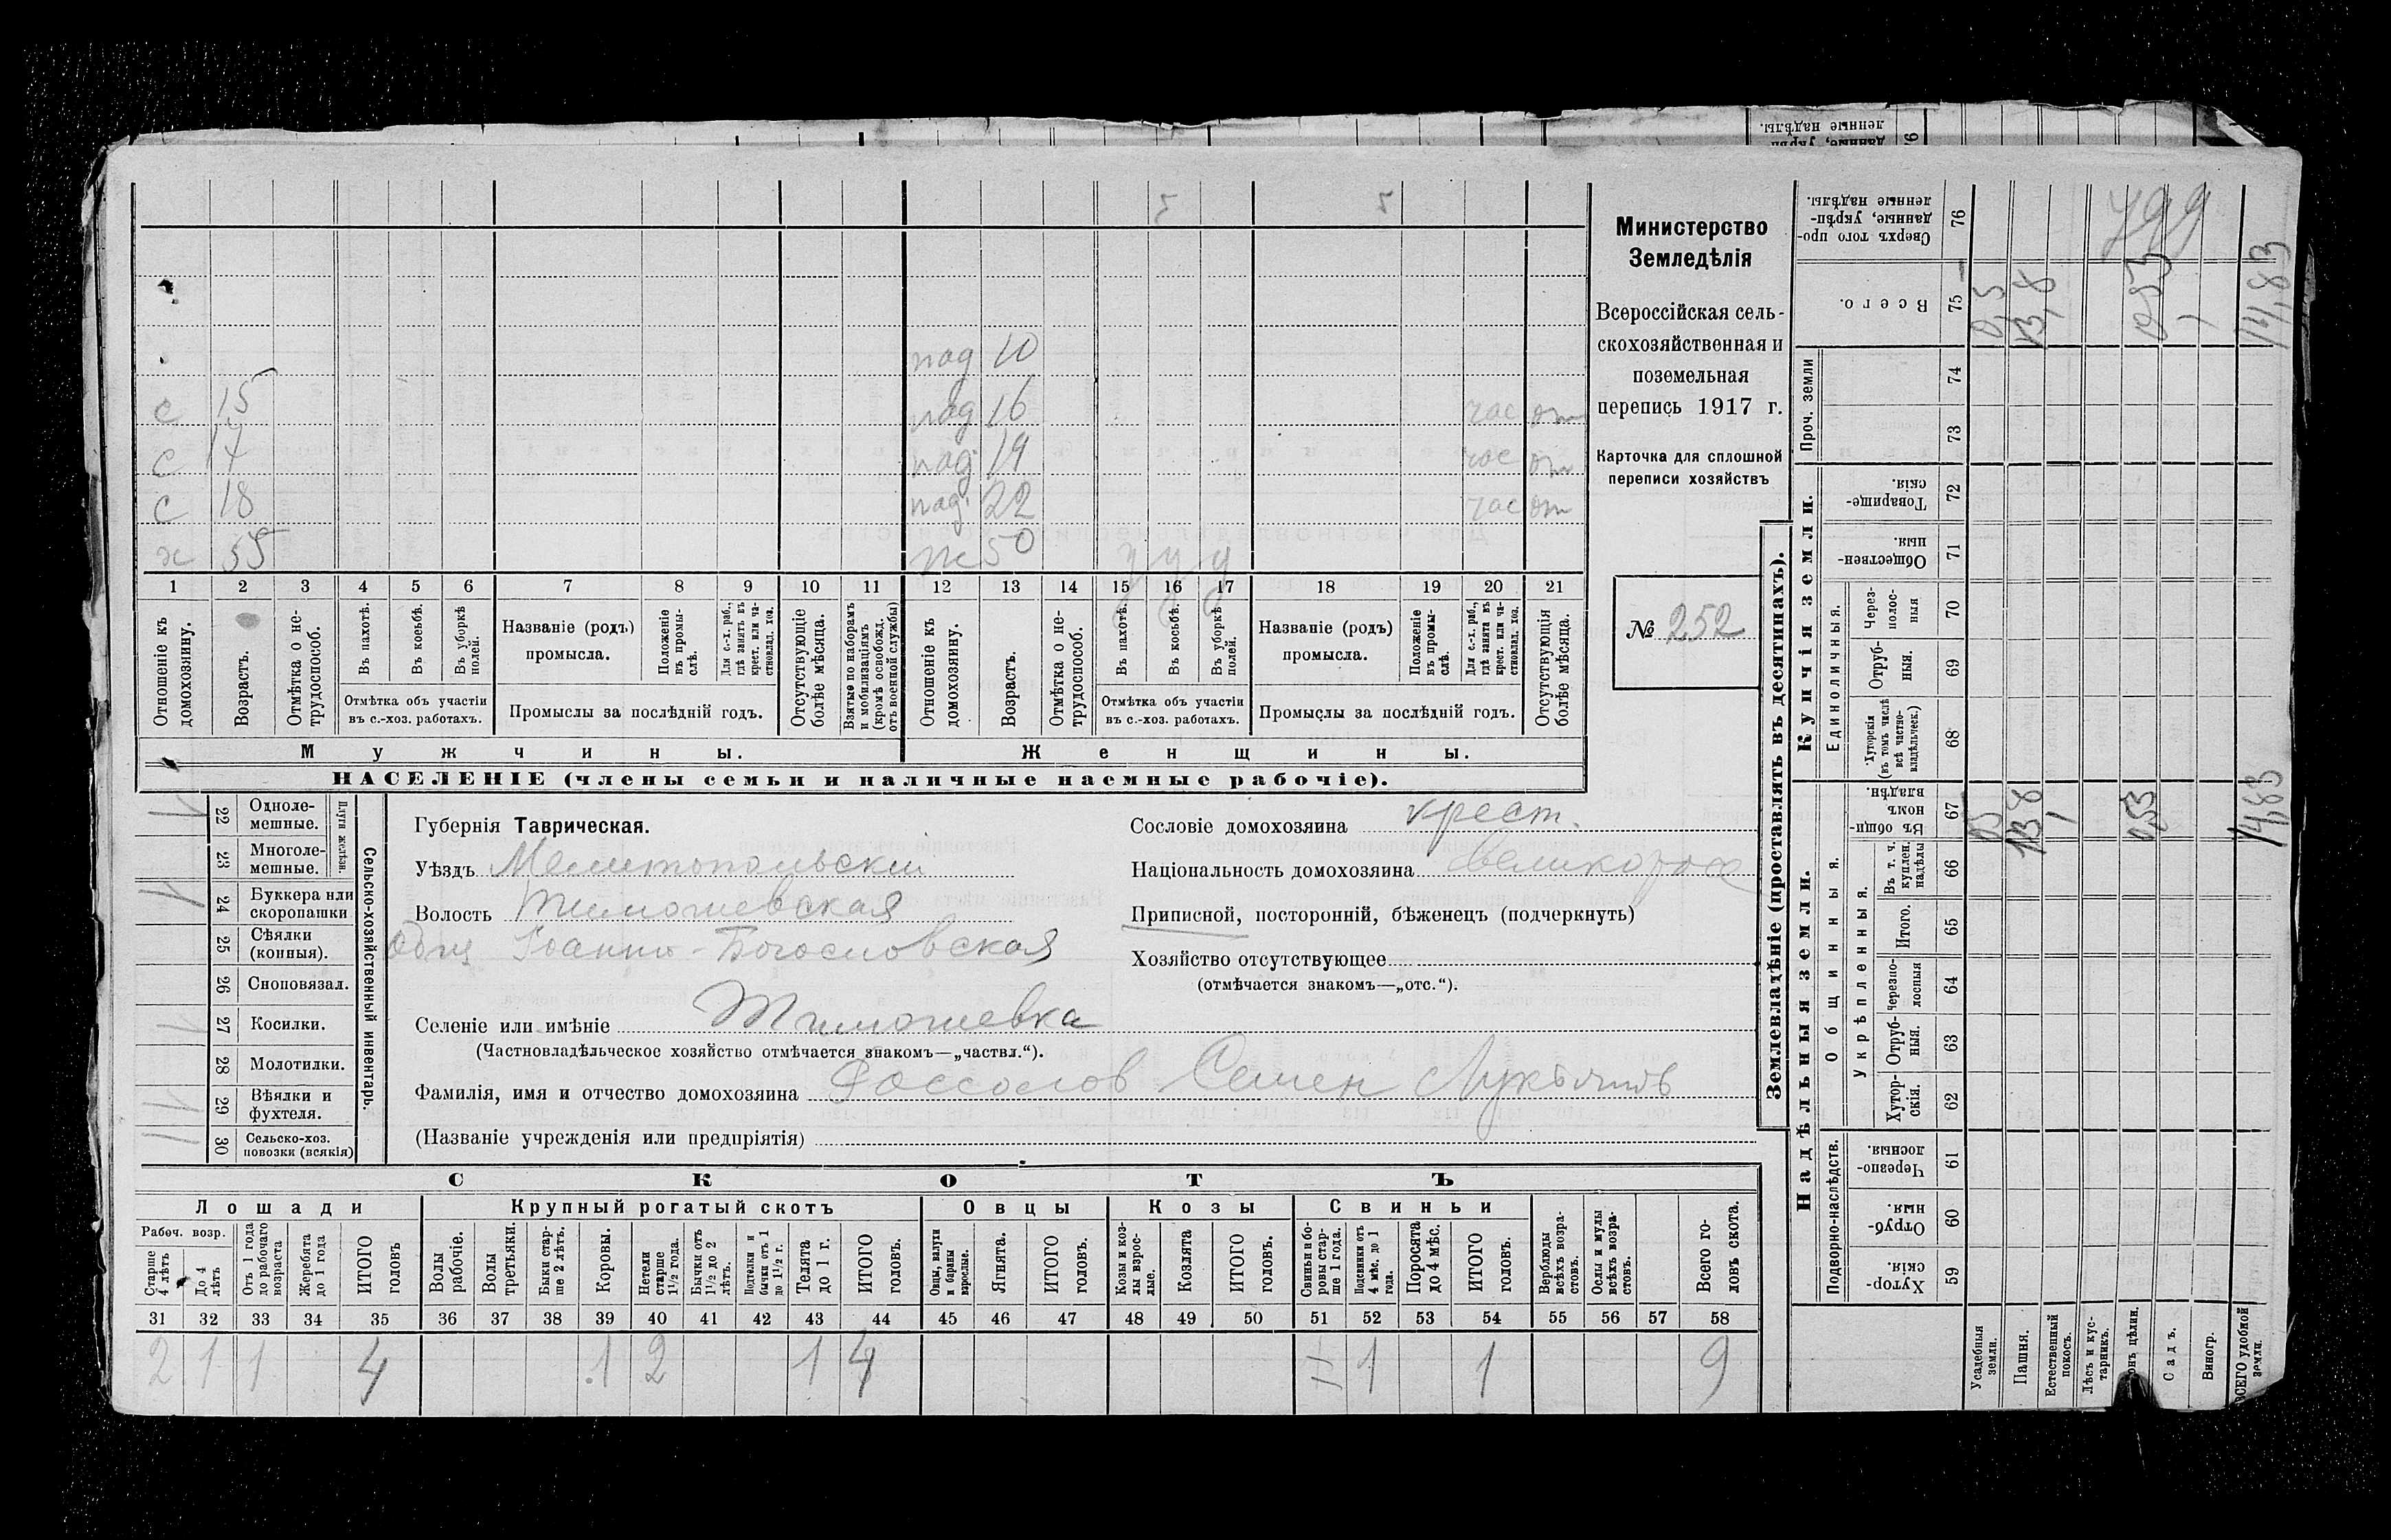 5 5
пад 10
с 15 пад 16 час от
с 17 пад 19 час от
с 18 пад. 22 час от
х 55 ж 50 у у у
1 2 3 4 5 6 7 8 9 10 11 12 13 14 15 16 17 18 19 20 21
Отношеніе къ домохозяину.
Возрастъ.
Отмѣтка о не-трудоспособ.
Въ пахотѣ.
Въ косьбѣ.
Въ уборкѣ полей.
Отмѣтка объ участіи
въ с.-хоз. работахъ.
Названіе (родъ)
промысла.
Положеніе въ промы-слѣ.
Для с.-х. раб., гдѣ занятъ въ крест. или ча-стновлад. хоз.
Промыслы за послѣдній годъ.
Отсутствующіе болѣе мѣсяца.
Взятые по наборамъ и мобилизаціямъ (кромѣ освобожд. отъ военной службы)
Отношеніе къ домохозяину.
Возрастъ.
Отмѣтка о не-трудоспособ.
Въ пахотѣ.
Въ косьбѣ.
Въ уборкѣ полей.
Отмѣтка объ участіи
въ с.-хоз. работахъ.
Названіе (родъ)
промысла.
Положеніе въ промы-слѣ.
Для с.-х. раб., гдѣ занята въ крест. или ча-стновлад. хоз.
Промыслы за послѣдній годъ.
Отсутствующія болѣе мѣсяца.
Мужчины. Женщины.
НАСЕЛЕНІЕ (члены семьи и наличные наемные рабочіе).
Министерство
Земледѣлія
Всероссійская сель-
скохозяйственная и
поземельная
перепись 1917 г.
Карточка для сплошной
переписи хозяйствъ
№ 252
Сельско-хозяйственный инвентарь.
Плуги желѣзн.
1 22 Однолемешные.
23 Многолемешные.
1 24 Буккера или скоропашки
25 Сѣялки (конныя).
26 Сноповязал.
1 27 Косилки.
28 Молотилки.
1 29 Вѣялки и фухтеля.
30 Сельско-хоз. повозки (всякія)
Губернія Таврическая.
Уѣздъ Мелитопольскій
Волость Тимошевская
Общ Іоанно-Богословская
Селеніе или имѣніе Тимошевка
(Частновладѣльческое хозяйство отмѣчается знакомъ—„частвл.“).
Фамилія, имя и отчество домохозяина Семен
(Названіе учрежденія или предпріятія)
Сословіе домохозяина крест.
Національность домохозяина великорос
Приписной, посторонній, бѣженецъ (подчеркнуть)
Хозяйство отсутствующее
(отмѣчается знакомъ—„отс.“).
СКОТЪ
Лошади Крупный рогатый скотъ Овцы Козы Свиньи
Рабоч. возр.
Старше 4 лѣтъ
До 4 лѣтъ
Отъ 1 года до рабочаго возраста
Жеребята до 1 года
ИТОГО головъ
Волы рабочіе.
Волы третьяки.
Быки стар-ше 2 лѣтъ.
Коровы.
Нетели старше 1½ года.
Бычки отъ 1½ до 2 лѣтъ.
Подтелки и бычки отъ 1 до 1½ г.
Телята до 1 г.
ИТОГО головъ.
Овцы, валухи и бараны взрослые.
Ягнята.
ИТОГО головъ.
Козы и коз-лы взрос-лые.
Козлята
ИТОГО головъ.
Свиньи и бо-ровы стар-ше 1 года.
Подсвинки отъ 4 мѣс. до 1 года.
Поросята до 4 мѣс.
ИТОГО головъ.
Верблюды всѣхъ возра-стовъ.
Ослы и мулы всѣхъ возра-стовъ.
Всего го-ловъ скота.
31 32 33 34 35 36 37 38 39 40 41 42 43 44 45 46 47 48 49 50 51 52 53 54 55 56 57 58
2 1 1 4 1 2 1 4 1 1 9
Землевладѣніе (проставлять въ десятинахъ).
Надѣльныя земли. Купчія земли. Проч. земли
Подворно-наслѣдств.
Общинныя.
Укрѣпленныя.
Единоличныя.
Хутор-скія. 59
Отруб-ныя. 60
Черезпо-лосныя. 61
Хутор-скія. 62
Отруб-ныя. 63
Черезпо-лосныя 64
Итого. 65
Въ т. ч. куплен. надѣлы 66
Въ общин-номъ владѣн. 67
Хуторскія (въ томъ числѣ всѣ частно-владѣльческ.) 68
Отруб-ныя. 69
Через-полос-ныя 70
Обществен-ныя. 71
Товарище-скія. 72
73
74
Всего. 75
Сверхъ того про-данные, укрѣп-ленные надѣлы. 76
Усадебныя земли. 0,5 0,5
Пашня. 13,8 13,8
Естественный покосъ.
Лѣсъ и кус-тарникъ.
цѣлин. 0,53 0,53
Садъ.
Виногр.
ВСЕГО удобной земли. 14,83 14,83
799